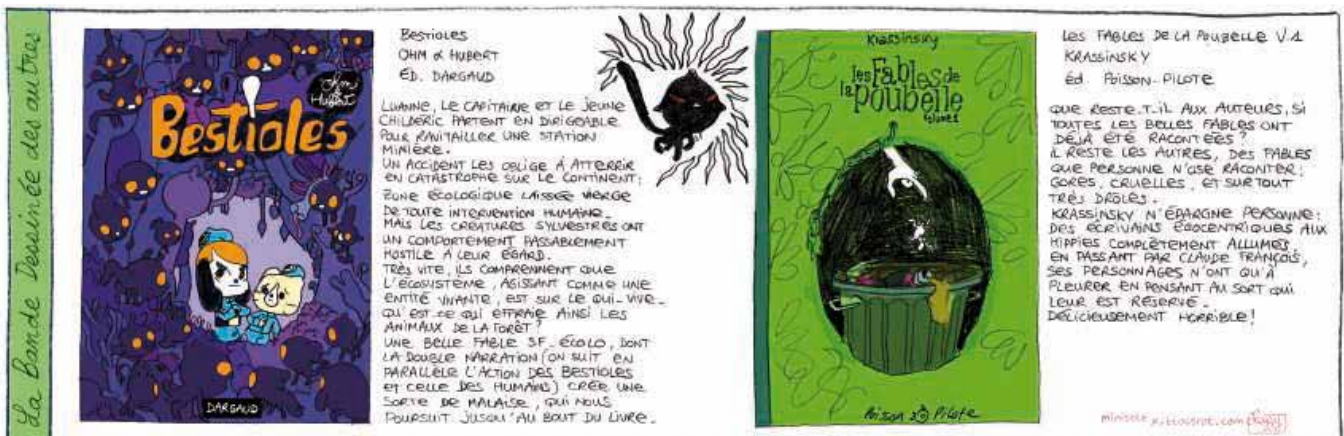 La Bande Dessinée des autres
Ohm &
Hubert
Bestioles
DARGAUD
Bestioles
OHM & HUBERT
ÉD. DARGAUD
LUANNE, LE CAPITAINE ET LE JEUNE
CHILDERIC PARTENT EN DIRIGEABLE
POUR RAVITAILLER UNE STATION
MINIÈRE.
UN ACCIDENT LES OBLIGE À ATTERRIR
EN CATASTROPHE SUR LE CONTINENT;
ZONE ÉCOLOGIQUE LAISSÉE VIERGE
DE TOUTE INTERVENTION HUMAINE.
MAIS LES CRÉATURES SYLVESTRES ONT
UN COMPORTEMENT PASSABLEMENT
HOSTILE À LEUR ÉGARD.
TRÈS VITE, ILS COMPRENNENT QUE
L'ÉCOSYSTÈME, AGISSANT COMME UNE
ENTITÉ VIVANTE, EST SUR LE QUI-VIVE.
QU'EST-CE QUI EFFRAIE AINSI LES
ANIMAUX DE LA FORÊT?
UNE BELLE FABLE SF-ÉCOLO, DONT
LA DOUBLE NARRATION (ON SUIT EN
PARALLÈLE L'ACTION DES BESTIOLES
ET CELLE DES HUMAINS) CRÉE UNE
SORTE DE MALAISE, QUI NOUS
POURSUIT JUSQU'AU BOUT DU LIVRE.
Krassinsky
les Fables de
la poubelle
volume 1
Poisson Pilote
LES FABLES DE LA POUBELLE V.1
KRASSINSKY
éd. POISSON-PILOTE
QUE RESTE.T-IL AUX AUTEURS, SI
TOUTES LES BELLES FABLES ONT
DÉJÀ ÉTÉ RACONTÉES?
IL RESTE LES AUTRES, DES FABLES
QUE PERSONNE N'OSE RACONTER;
GORES, CRUELLES, ET SURTOUT
TRÈS DRÔLES.
KRASSINSKY N'ÉPARGNE PERSONNE:
DES ÉCRIVAINS ÉGOCENTRIQUES AUX
HIPPIES COMPLÈTEMENT ALLUMÉS,
EN PASSANT PAR CLAUDE FRANÇOIS,
SES PERSONNAGES N'ONT QU'À
PLEURER EN PENSANT AU SORT QUI
LEUR EST RÉSERVÉ.
DÉLICIEUSEMENT HORRIBLE!